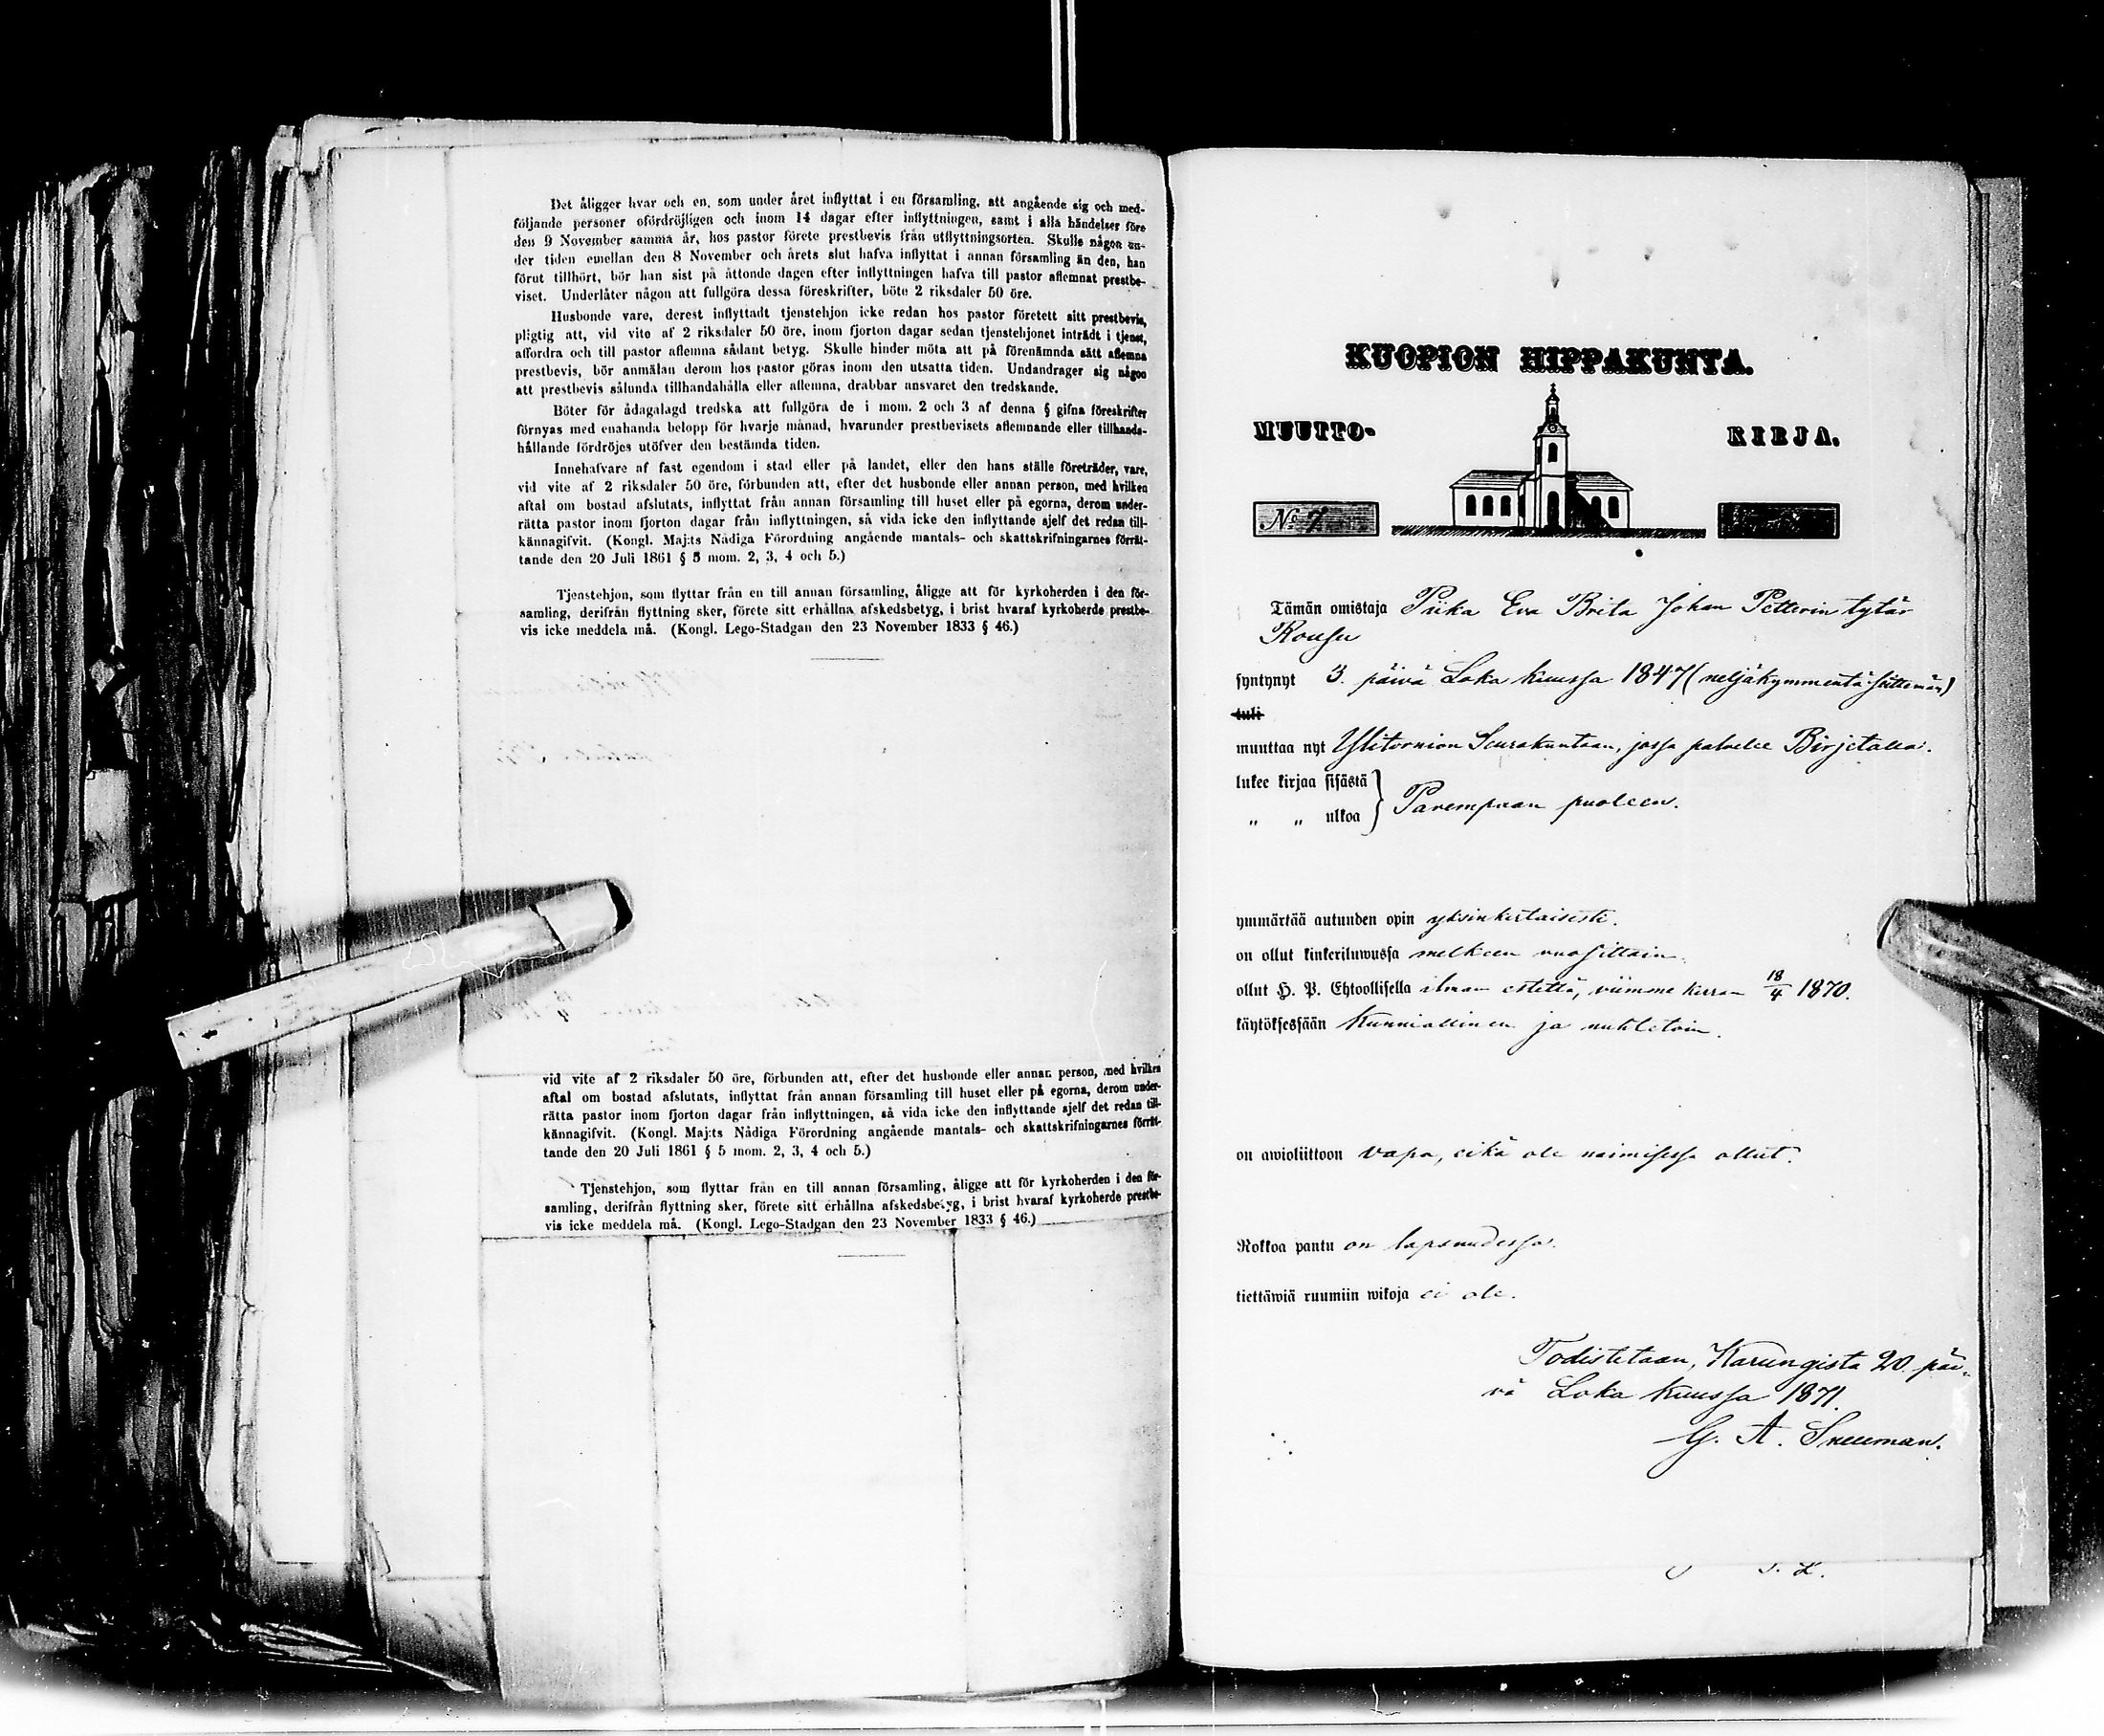 Det åligger hvar och en, som under året inflyttat i en församling, att angående sig och med-
följande personer ofördröjligen och inom 14 dagar efter inflyttningen, samt i alla händelser före
den 9 November samma år, hos pastor förete prestbevis från utflyttningsorten. Skulle någon un-
der tiden emellan den 8 November och årets slut hafva inflyttat i annan församling än den, han
förut tillhört, bör han sist på åttonde dagen efter inflyttningen hafva till pastor aflemnat prestbe-
viset. Underlåter någon att fullgöra dessa föreskrifter, böte 2 riksdaler 50 öre.
Husbonde vare, derest inflyttadt tjenstehjon icke redan hos pastor företett sitt prestbevis,
pligtig att, vid vite af 2 riksdaler 50 öre, inom fjorton dagar sedan tjenstehjonet inträdt i tjenst,
affordra och till pastor aflemna sådant betyg. Skulle hinder möta att på förenämnda sätt aflemna
prestbevis, bör anmälan derom hos pastor göras inom den utsatta tiden. Undandrager sig någon
att prestbevis sålunda tillhandahålla eller aflemna, drabbar ansvaret den tredskande.
Böter för ådagalagd tredska att fullgöra de i mom. 2 och 3 af denna § gifna föreskrifter
förnyas med enahanda belopp för hvarje månad, hvarunder prestbevisets aflemnande eller tillhanda-
hållande fördröjes utöfver den bestämda tiden.
Innehafvare af fast egendom i stad eller på landet, eller den hans ställe företräder, vare,
vid vite af 2 riksdaler 50 öre, förbunden att, efter det husbonde eller annan person, med hvilken
aftal om bostad afslutats, inflyttat från annan församling till huset eller på egorna, derom under-
rätta pastor inom fjorton dagar från inflyttningen, så vida icke den inflyttande sjelf det redan till-
kännagifvit. (Kongl. Maj:ts Nådiga Förordning angående mantals- och skattskrifningarnes förrät-
tande den 20 Juli 1861 § 5 mom. 2, 3, 4 och 5.)
Tjenstehjon, som flyttar från en till annan församling, åligge att för kyrkoherden i den för-
samling, derifrån flyttning sker, förete sitt erhållna afskedsbetyg, i brist hvaraf kyrkoherde prestbe-
vis icke meddela må. (Kongl. Lego-Stadgan den 23 November 1833 § 46.)
vid vite af 2 riksdaler 50 öre, förbunden att, efter det husbonde eller annan person, med hvilken
aftal om bostad afslutats, inflyttat från annan församling till huset eller på egorna, derom under-
rätta pastor inom fjorton dagar från inflyttningen, så vida icke den inflyttande sjelf det redan till-
kännagifvit. (Kongl. Maj:ts Nådiga Förordning angående mantals- och skattskrifningarnes förrät-
tande den 20 Juli 1861 § 5 mom. 2, 3, 4 och 5.)
Tjenstehjon, som flyttar från en till annan församling, åligge att för kyrkoherden i den för-
samling, derifrån flyttning sker, förete sitt erhållna afskedsbetyg, i brist hvaraf kyrkoherde prestbe-
vis icke meddela må. (Kongl. Lego-Stadgan den 23 November 1833 § 46.)
KUOPION HIPPAKUNTA.
MUUTTO- KIRJA.
No 7
Tämän omistaja Piika Eva Brita Johan Petterin tytär
Rousu
syntynyt 3. päivä Loka kuussa 1847 (neljäkymmentä seittemän)
tuli
muuttaa nyt Ylitornion Seurakuntaan, jossa palvelee Birjetalla.
lukee kirjaa sisästä
„ „ ulkoa } Parempaan puoleen.
ymmärtää autuuden opin yksinkertaisesti.
on ollut kinkeriluwussa melkeen vuosittain.
ollut H. P. Ehtoollisella ilman estettä, viimme kerran 18/4 1870.
käytöksessään kunniallinen ja nuhtetoin.
on awioliittoon vapa, eikä ole naimisessa ollut.
Rokkoa pantu on lapsuudessa.
tiettäwiä ruumiin wikoja ei ole.
Todistetaan, Karungista 20. päi-
vä Loka kuussa 1871.
G. A. Snellman.